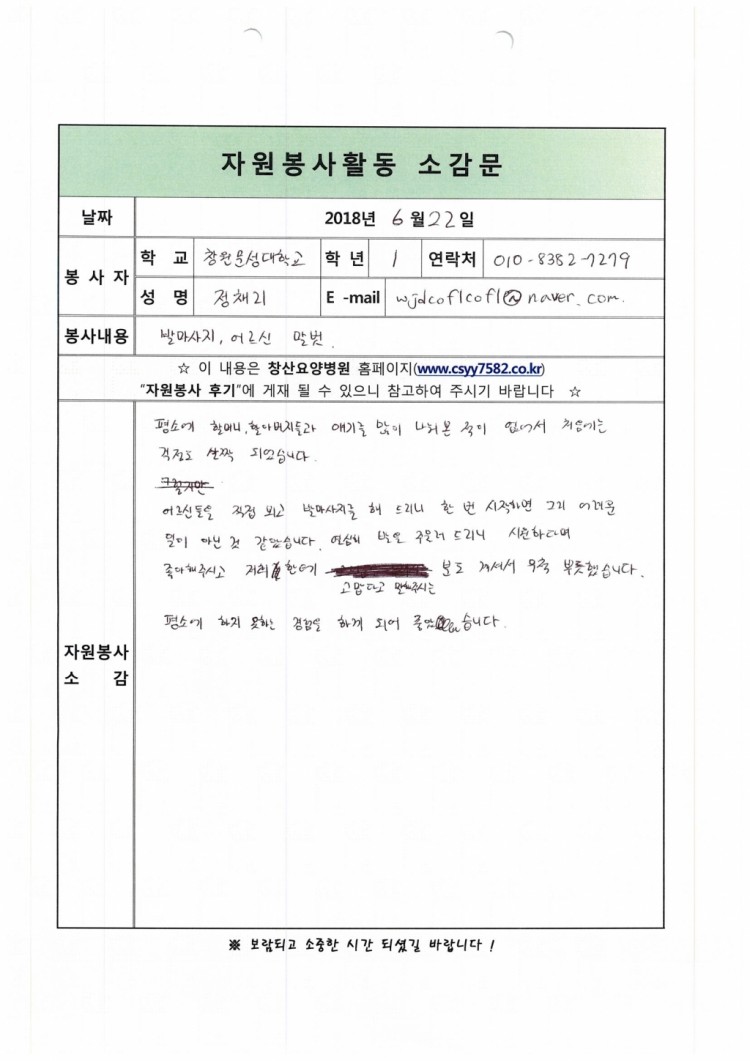 자원봉사활동 소감문
날짜 2018년 6월 22일
봉사자 학교 창원문성대학교 학년 1 연락처 010-8382-7279
성명 정채리 E-mail wjdcoflcofl@naver.com.
봉사내용 발마사지, 어르신 말벗.
☆ 이 내용은 창산요양병원 홈페이지(www.csyy7582.co.kr)
"자원봉사 후기"에 게재 될 수 있으니 참고하여 주시기 바랍니다 ☆
자원봉사
소 감
평소에 할머니, 할아버지들과 얘기를 많이 나눠본 적이 없어서 처음에는
걱정도 살짝 되었습니다.
그렇지만
어르신들을 직접 뵈고 발마사지를 해 드리니 한 번 시작하면 그리 어려운
일이 아닌 것 같았습니다. 열심히 발을 주물러 드리니 시원하다며
좋아해주시고 저희한테 고맙다고 말해주시는 분도 계셔서 무척 뿌듯했습니다.
평소에 하지 못하는 경험을 하게 되어 좋았습니다.
※ 보람되고 소중한 시간 되셨길 바랍니다 !